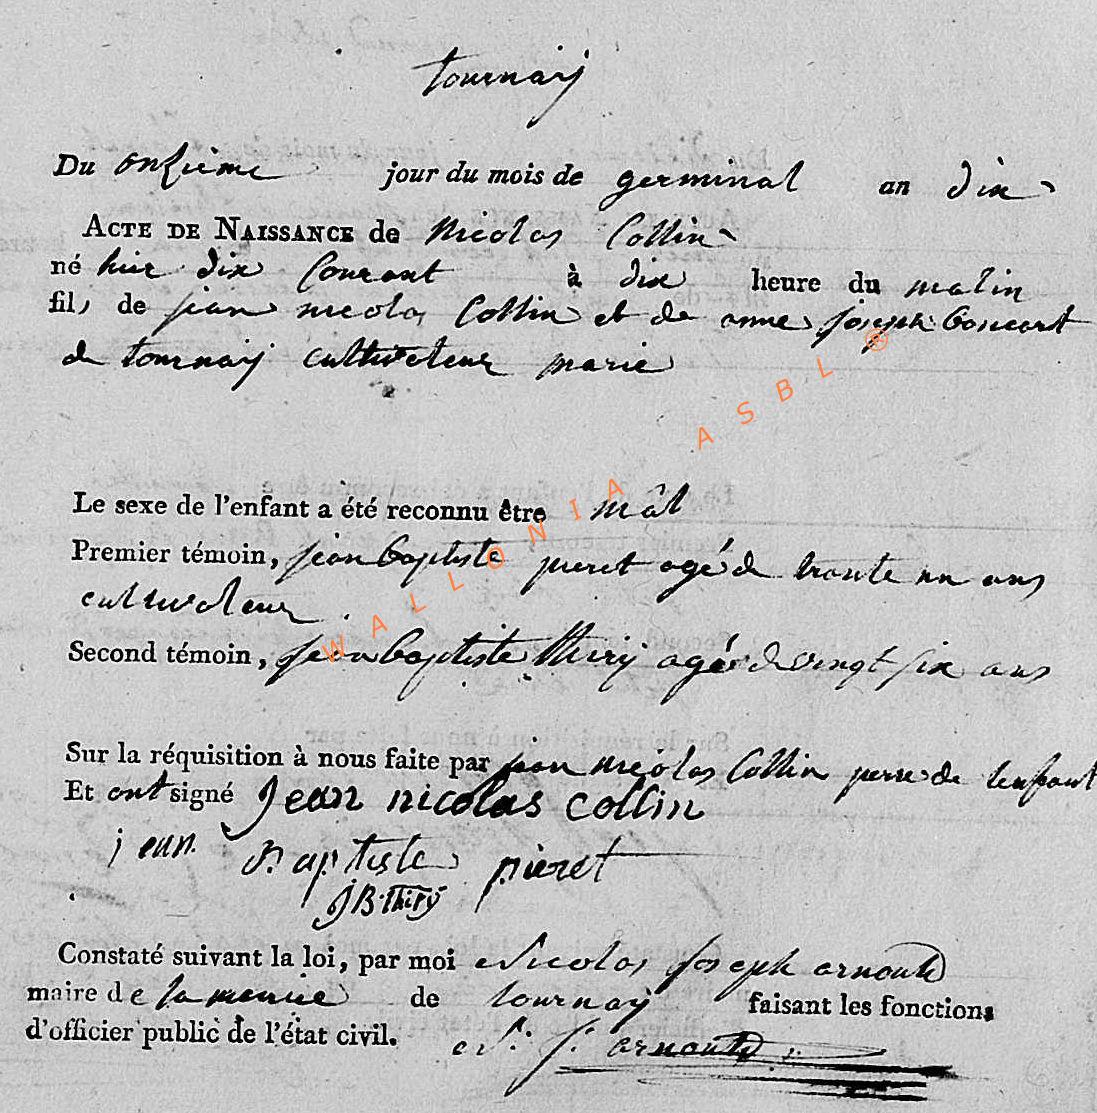 tournaij
Du onzieme jour du mois de germinal an dix
ACTE DE NAISSANCE de Nicolas Collin
né hier dix Courant à dix heure du matin
fils de jean nicolas Collin et de anne joseph
de tournaij cultivateur marie
Le sexe de l'enfant a été reconnu être mâl
Premier témoin, jean baptiste pieret agé de trante un ans
cultivateur
Second témoin, jean baptiste thirij agé de vingt six ans
Sur la réquisition à nous faite par jean nicolas Collin pere de lenfant
Et ont signé jean nicolas collin
jean Baptiste pieret
JB thiry
Constaté suivant la loi, par moi Nicolas joseph arnould
maire de la mairie de tournaij faisant les fonctions
d'officier public de l'état civil. N. j. arnould
WALLONIA ASBL ®